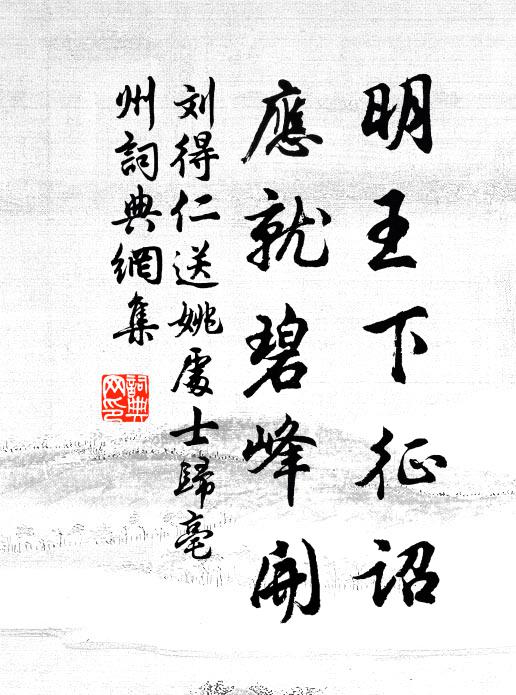 明王下征詔
應就碧峰開
刘得仁送姚處士歸亳
州詞典網集
詞典网印